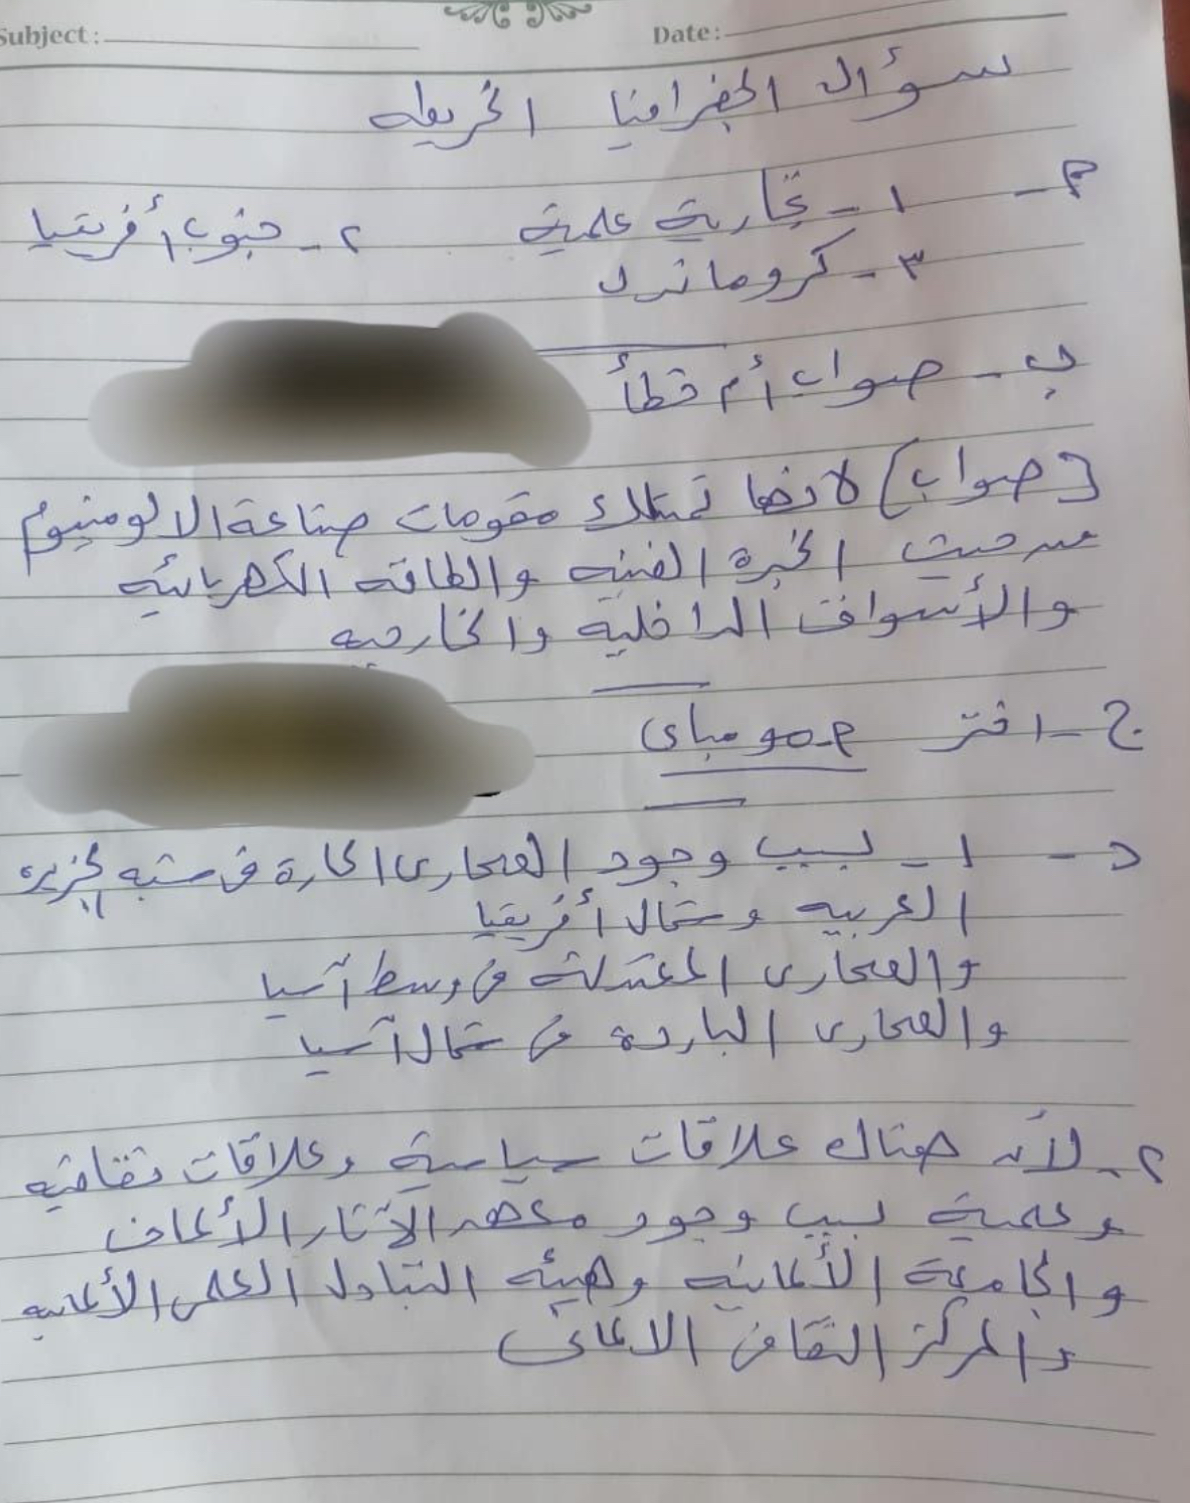 Subject:
Date:
سؤال الجغرافيا الخريطه
م - ١ - تجارية علمية ٢ - جنوب أفريقيا
٣ - كروماندل
ب - صواب أم خطأ
[صواب] لانها تمتلك مقومات صناعة الالومنيوم
من حيث الخبرة الفنيه والطاقه الكهربائيه
والأسواق الداخلية والخارجيه
ج - اختر مومباى
د - ١ - بسبب وجود الصحارى الحارة فى شبه الجزيره
العربيه وشمال أفريقيا
والصحارى المعتدلة فى وسط آسيا
والصحارى الباردة فى شمال آسيا
٢ - لأنه هناك علاقات سياسية وعلاقات ثقافيه
وعلمية بسبب وجود معهد الآثار الألمانى
والجامعة الألمانيه وهيئه التبادل العلمى الألمانيه
والمركز الثقافى الالمانى